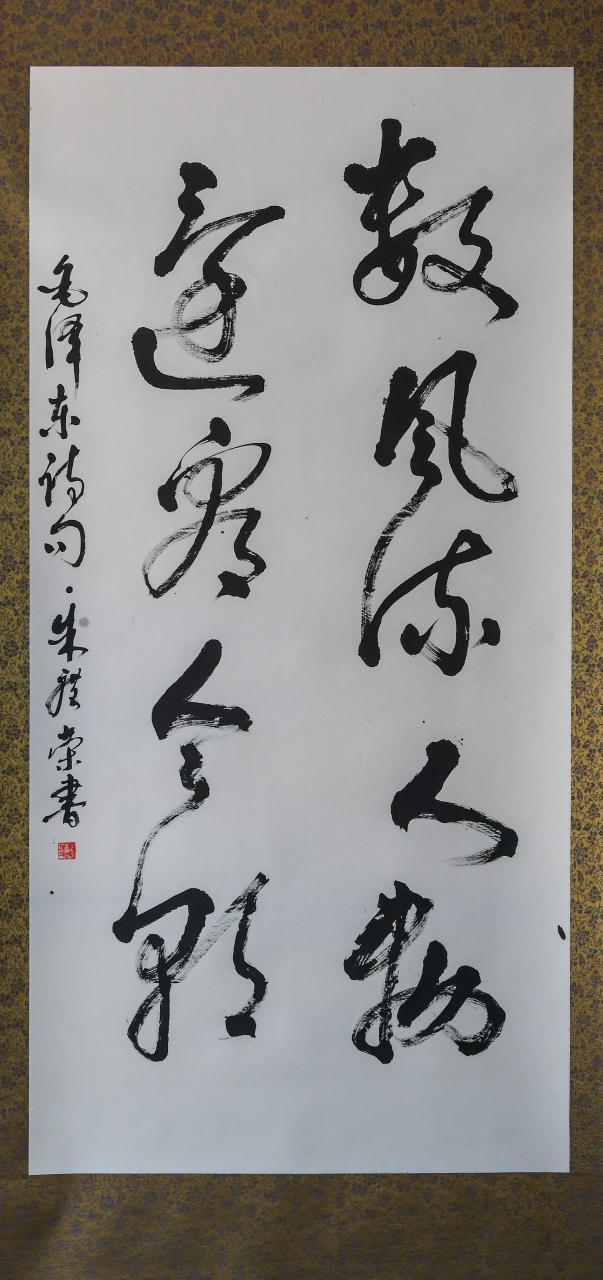 数风流人物
還看今朝
毛泽东诗句·朱荣書